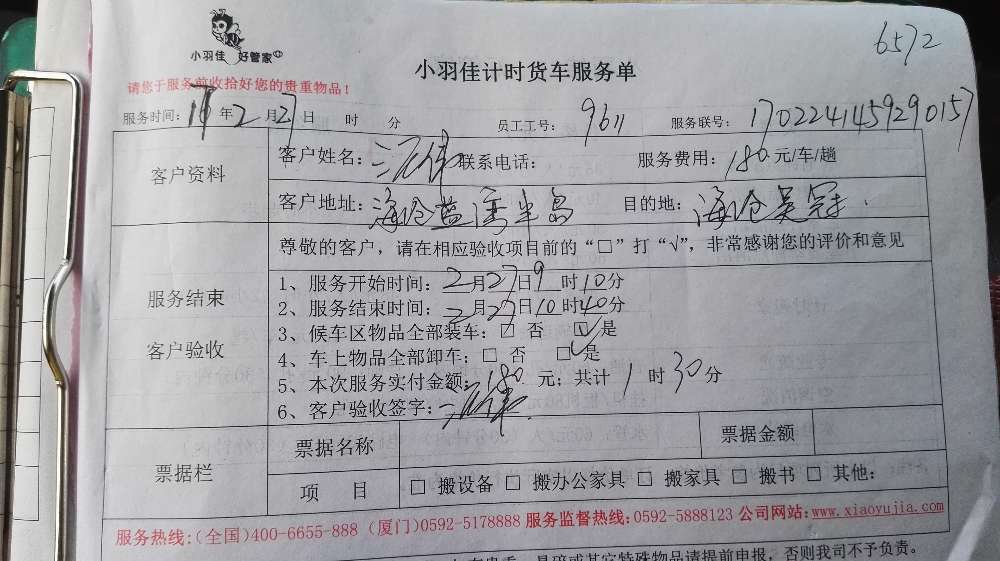 小羽佳 好管家
6572
小羽佳计时货车服务单
请您于服务前收拾好您的贵重物品！
服务时间：17年2月27日 时 分 员工工号：9611 服务联号：1702241459290157
客户资料
客户姓名： 联系电话： 服务费用：180元/车/趟
客户地址：海沧蓝湾半岛 目的地：海沧吴冠
尊敬的客户，请在相应验收项目前的“□”打“√”，非常感谢您的评价和意见
服务结束
客户验收
1、服务开始时间：2月27日9时10分
2、服务结束时间：2月27日10时40分
3、候车区物品全部装车：□ 否 ☑是
4、车上物品全部卸车：□ 否 ☑是
5、本次服务实付金额：180元；共计1时30分
6、客户验收签字：
票据栏
票据名称 票据金额
项 目 □ 搬设备 □ 搬办公家具 □ 搬家具 □ 搬书 □ 其他：
服务热线：（全国）400-6655-888（厦门）0592-5178888 服务监督热线：0592-5888123 公司网站：www.xiaoyujia.com
易碎或其它特殊物品请提前申报，否则我司不予负责。